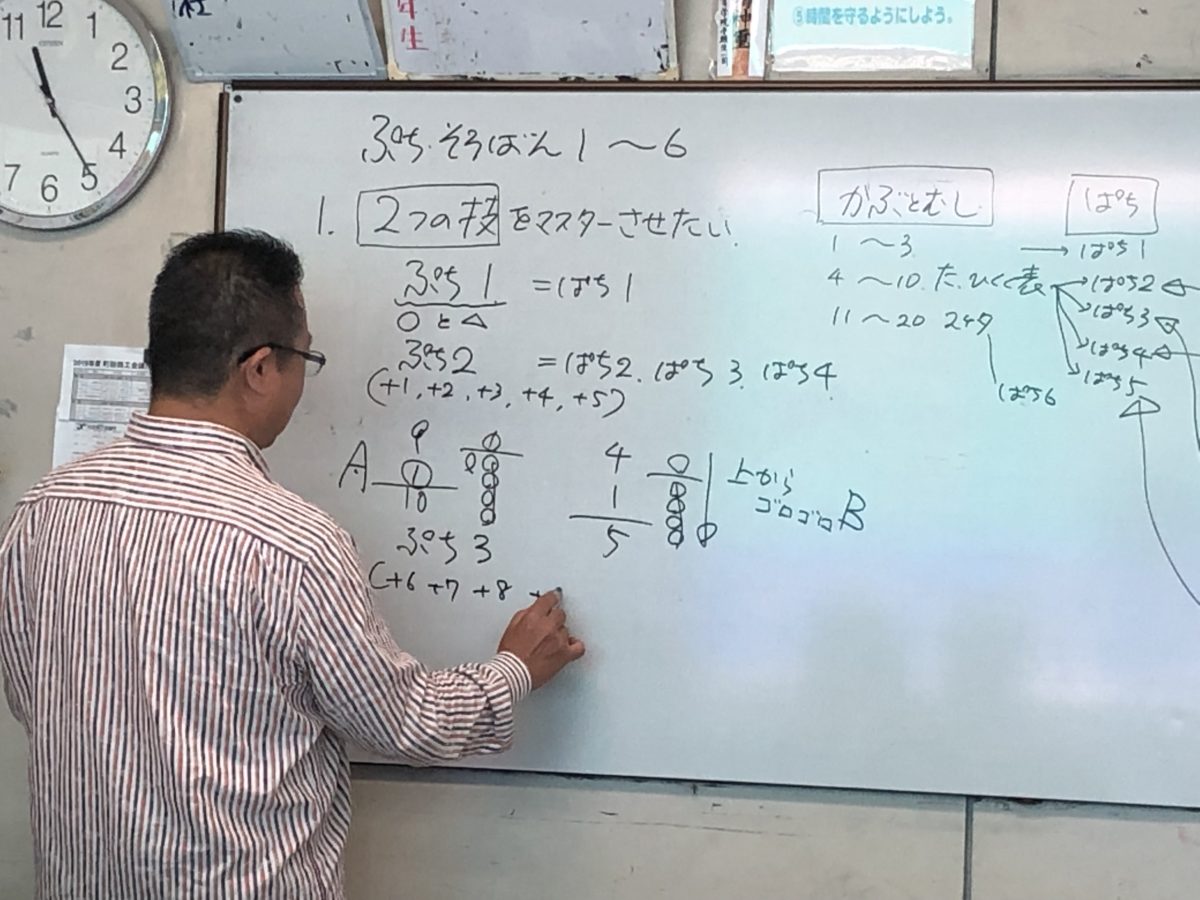 年生
⑤時間を守るようにしよう。
11 12 1
2
3
4
5
6
7
ぷち そろばん 1 〜 6
1. 2つの技 をマスターさせたい.
ぷち 1 = ぱち 1
○と△
ぷち2 = ぱち2. ぱち 3. ぱち4
(+1, +2, +3, +4, +5)
A
9
1
10
4
1
5
上から
ゴロゴロ B
ぷち 3
(+6 +7 +8 +
かぶとむし
1 〜3
4 〜10. た.ひくく表
11 〜20 2ケタ
ぱち
→ ぱち 1
ぱち2
ぱち3
ぱち4
ぱち5
ぱち6